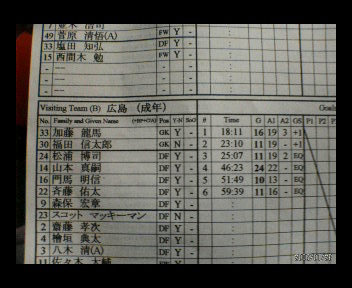 49 菅原 清悟(A) FW Y -
33 塩田 知弘 DF Y -
15 西間木 勉 FW Y -
Visiting Team (B) 広島 (成年) Goals
No. Family and Given Name Pos Y-N # Time G A1 A2 GS P1 P2
33 加藤 龍馬 GK Y - 1 18:11 16 19 3 +1
30 福田 信太郎 GK N - 2 23:10 11 19 - +1
24 松浦 博司 DF Y - 3 25:07 11 19 2 EQ
14 山本 真嗣 DF Y - 4 46:23 24 22 - EQ
16 門馬 明信 DF Y - 5 51:49 10 13 - EQ
22 斉藤 佑太 DF Y - 6 59:39 11 16 - EQ
9 森保 宏章 DF Y -
23 スコット マッキーマン DF N -
2 齋藤 孝次 DF Y -
4 檜垣 典太 DF Y -
3 八木 清(A) DF Y -
11 佐々木